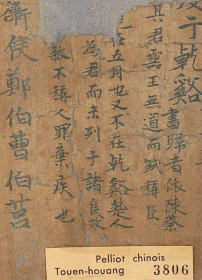 于乾谿書歸者依陳蔡
其君靈王無道而弒稱臣
在五月也又不在乾谿楚人
為君而未列于諸侯故
煞不稱人罪棄疾也
衛侯鄭伯曹伯莒
Pelliot chinois
Touen-houang 3806